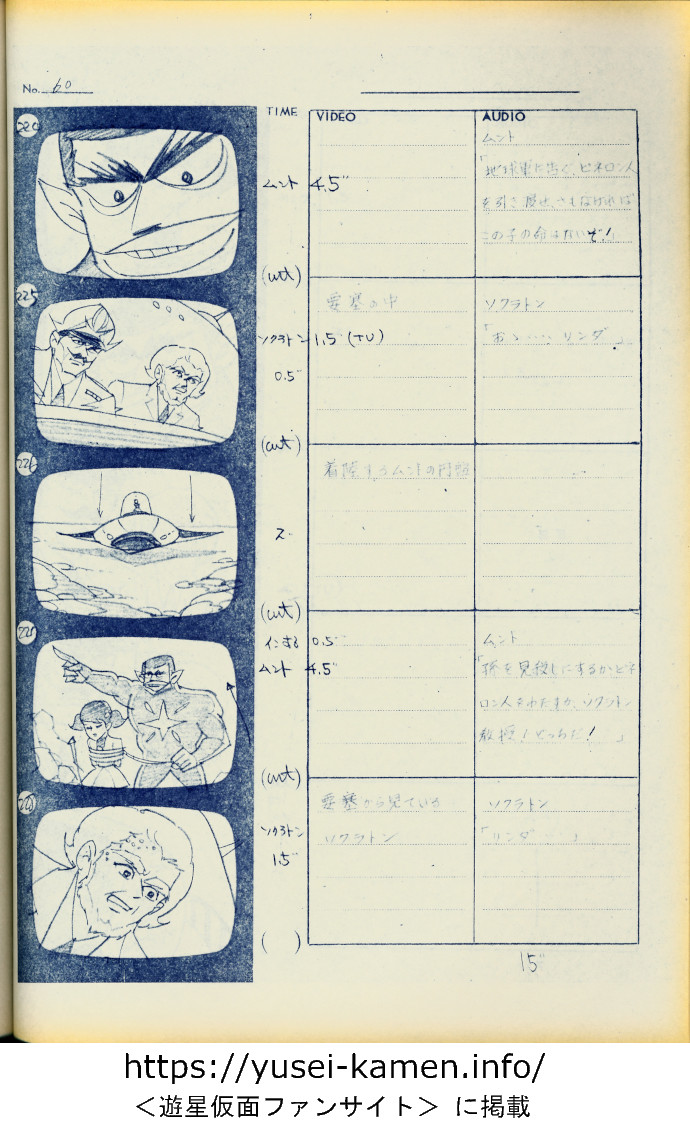 No. 60
TIME
VIDEO
AUDIO
ムント 4.5"
ムント
「地球軍に告ぐ、ピネロン人
を引き渡せ、さもなければ
この子の命はないぞ!」
(cut)
225
ソクラトン 1.5" (T.U)
0.5"
要塞の中
ソクラトン
「おゝ……リンダ」
(cut)
226
2"
着陸するムントの円盤
(cut)
インする 0.5"
ムント 4.5"
ムント
「孫を見殺しにするかピネ
ロン人をわたすか、ソクラトン
教授!どっちだ!」
(cut)
ソクラトン
1.5"
要塞から見ている
ソクラトン
ソクラトン
「リンダ…」
( )
15"
https://yusei-kamen.info/
＜遊星仮面ファンサイト＞ に掲載